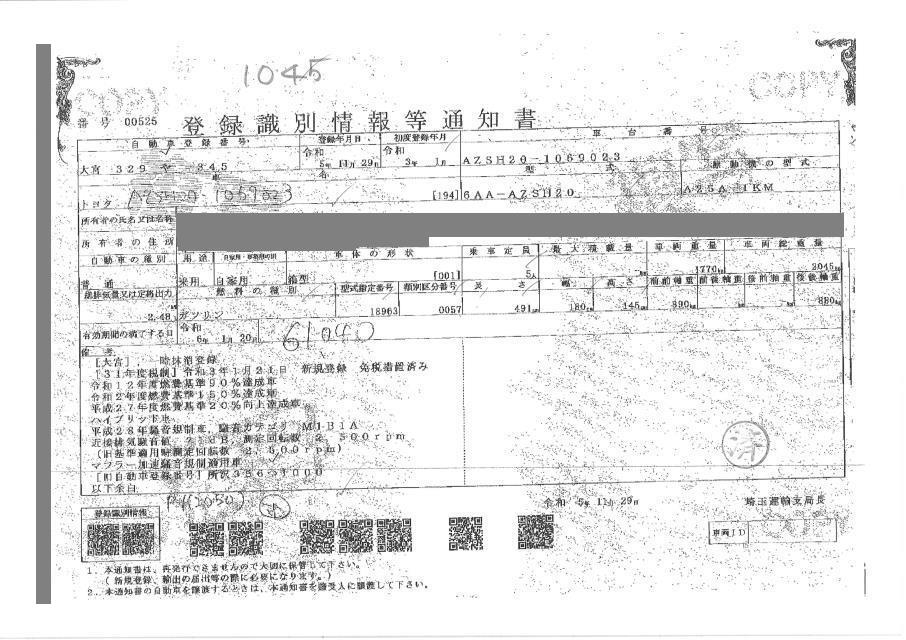 1045
COPY
番号 00525 登録識別情報等通知書
自動車登録番号 登録年月日 初度登録年月 車台番号
大宮 329 345
令和 5年 11月 29日
令和 3年 1月
AZSH20-1069023
型式 原動機の型式
トヨタ [194] 6AA-AZSH20 A25A-1KM
所有者の氏名又は名称
所有者の住所
自動車の種別 用途 自家用・事業用の別 車体の形状 乗車定員 最大積載量 車両重量 車両総重量
普通 乗用 自家用 箱型 [001] 5人 1770kg 2045kg
総排気量又は定格出力 燃料の種別 型式指定番号 類別区分番号 長さ 幅 高さ 前前軸重 前後軸重 後前軸重 後後軸重
2.48 ガソリン 18963 0057 491 180 145 890 880
有効期間の満了する日 令和 6年 1月 20日
61040
備考
[大宮] 一時抹消登録
[31年度税制] 令和3年1月21日 新規登録 免税措置済み
令和12年度燃費基準90%達成車
令和2年度燃費基準150%達成車
平成27年度燃費基準20%向上達成車
ハイブリッド車
平成28年騒音規制車、騒音カテゴリ M1B1A
近接排気騒音値 dB 測定回転数 2,500rpm
(旧基準適用時測定回転数 2,500rpm)
マフラー加速騒音規制適用車
[旧自動車登録番号] 所沢
以下余白
済
令和 5年 11月 29日 埼玉運輸支局長
登録識別情報
車両ID
1. 本通知書は、再発行できませんので大切に保管して下さい。
(新規登録、輸出の届出等の際に必要になります。)
2. 本通知書の自動車を譲渡するときは、本通知書を譲受人に譲渡して下さい。